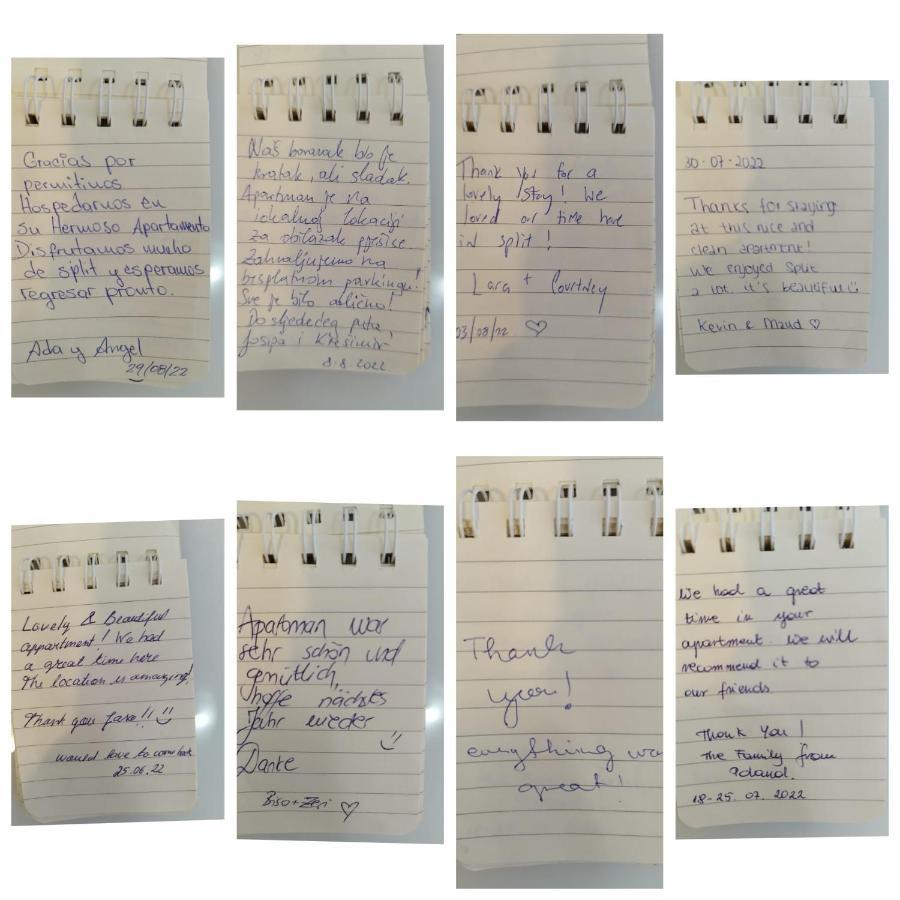 Gracias por
permitirnos
Hospedarnos en
su Hermoso Apartamento
Disfrutamos mucho
de split y esperamos
regresar pronto.
Ada y Angel
29/08/22
Naš boravak bio je
kratak, ali sladak.
Apartman je na
lokaciji
za obilazak pješice.
Zahvaljujemo na
besplatnom parkingu!
Sve je bilo odlično!
Do sljedećeg puta,
Josipa i Krešimir
8.8.2022
Thank you for a
lovely stay! We
loved our time here
in split!
Lara + Courtney
03/08/22 ♡
30-07-2022
Thanks for staying
at this nice and
clean apartment!
We enjoyed Split
a lot. it's beautiful :)
Kevin & Maud ♡
Lovely & Beautiful
appartment! We had
a great time here
The location is amazing!
Thank you !! :)
would love to come back
25.06.22
Apartman war
sehr schön und
gemütlich,
hoffe nächstes
Jahr wieder
:)
Danke
Biso + Zeri ♡
Thank
you!
everything wa
great!
We had a great
time in your
apartment. We will
recommend it to
our friends.
Thank You!
The Family from
Poland.
18-25.07.2022